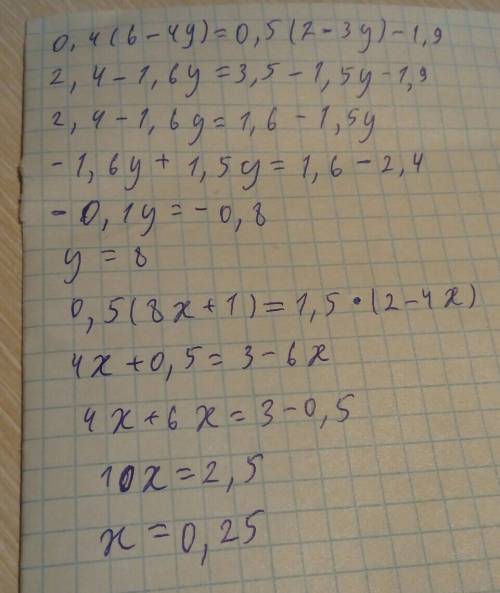 0,4(6-4y)=0,5(2-3y)-1,9
2,4-1,6y=3,5-1,5y-1,9
2,4-1,6y=1,6-1,5y
-1,6y+1,5y=1,6-2,4
-0,1y=-0,8
y=8
0,5(8x+1)=1,5•(2-4x)
4x+0,5=3-6x
4x+6x=3-0,5
10x=2,5
x=0,25